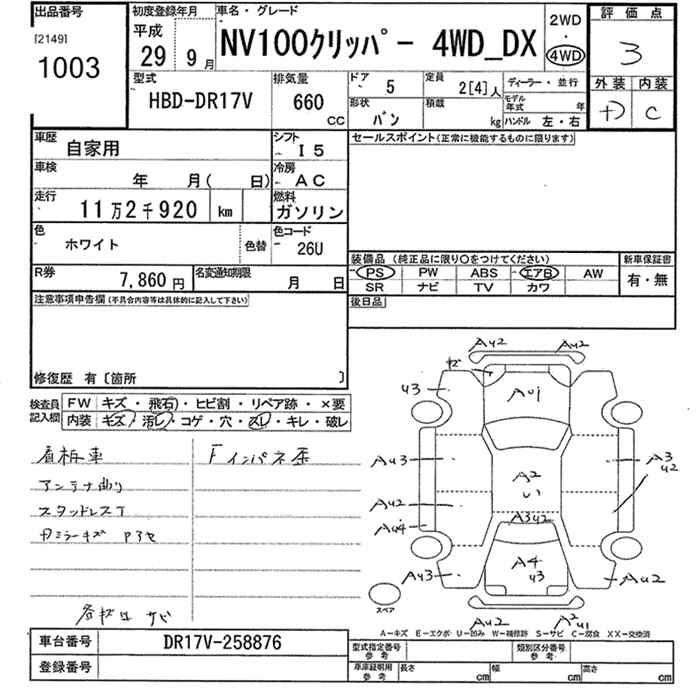 出品番号
[2149]
1003
初度登録年月
平成
29 9月
車名・グレード
NV100クリッパ- 4WD_DX
2WD
・
4WD
評価点
3
外装 内装
D C
型式
HBD-DR17V
排気量
660
CC
ドア
5
形状
バン
定員
2[4]人
積載
kg
ディーラー・並行
モデル年式 年
ハンドル 左・右
車歴
自家用
シフト
I5
車検
年 月( 日)
冷房
AC
走行
11万2千920 km
燃料
ガソリン
色
ホワイト
色替
色コード
26U
R券
7,860円
名変通知期限
月 日
セールスポイント(正常に機能するものに限ります)
装備品 (純正品に限り○をつけてください)
PS PW ABS エアB AW
SR ナビ TV カワ
新車保証書
有・無
後日品
注意事項申告欄(不具合内容等は具体的に記入して下さい)
修復歴 有〔箇所 〕
検査員記入欄
FW キズ・飛石・ヒビ割・リペア跡・×要
内装 キズ・汚レ・コゲ・穴・スレ・キレ・破レ
看板車
アンテナ曲り
スタッドレスT
Fインパネ系
各技は サビ
AU2 AU2
U3
AU1
AU3
A3
U2
A2
い
AU2
A3U2
AU4
A4
U3
AU3
AU2
スペア
AU2 A2U1
A-キズ E-エクボ U-凹み W-補修跡 S-サビ C-腐食 XX-交換済
車台番号
DR17V-258876
登録番号
型式指定番号
参考
類別区分番号
参考
車庫証明用
参考
長さ cm
幅 cm
高さ cm